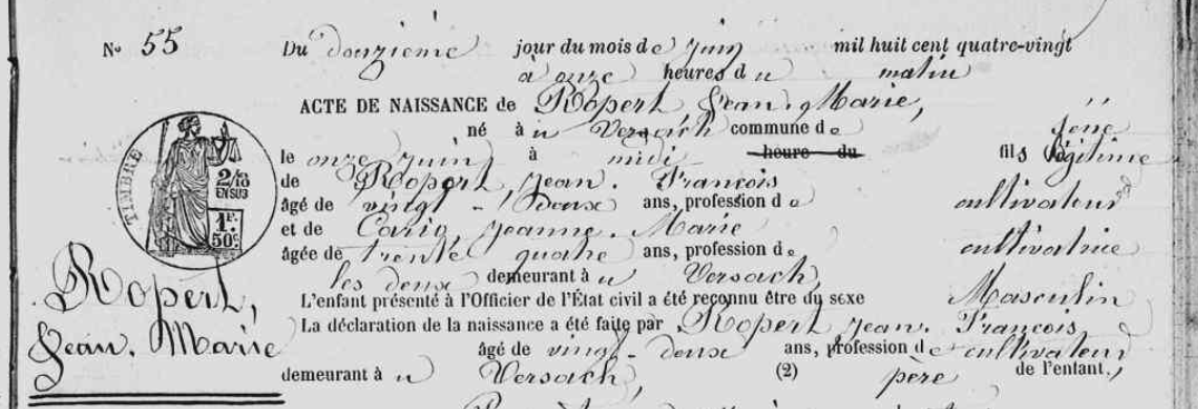 No 55
Du douzième jour du mois de juin mil huit cent quatre-vingt
à onze heures du matin
ACTE DE NAISSANCE de Ropert Jean. Marie,
né à u Versach commune de
le onze juin à midi heure du fils légitime
de Ropert, Jean. François
âgé de vingt-deux ans, profession de cultivateur
et de Jeanne. Marie
âgée de trente quatre ans, profession de cultivatrice
les deux demeurant à u Versach,
L'enfant présenté à l'Officier de l'État civil a été reconnu être du sexe Masculin
La déclaration de la naissance a été faite par Ropert Jean. François,
âgé de vingt-deux ans, profession de cultivateur
demeurant à u Versach, (2) père de l'enfant,
TIMBRE
2/10 EN SUS
1F. 50c.
Ropert,
Jean. Marie